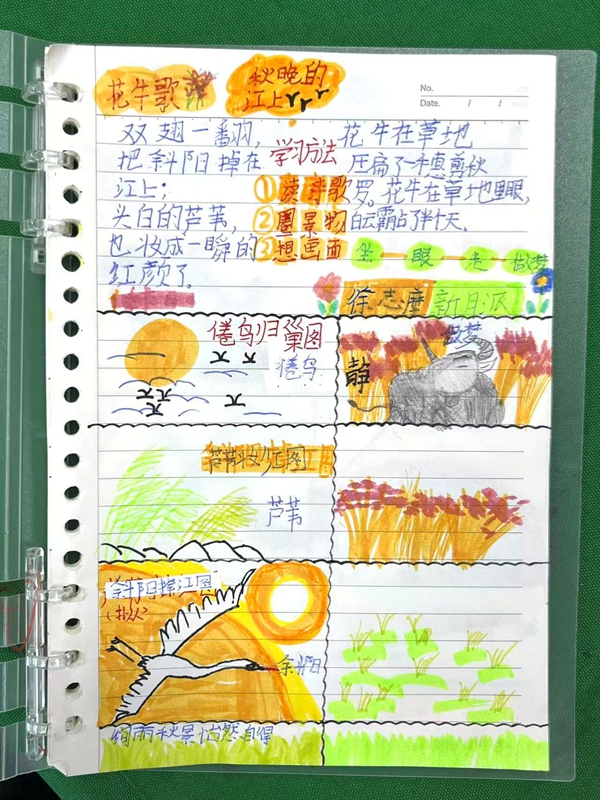 花牛歌
秋晚的
江上
No.
Date. / /
双翅一翻,
把斜阳掉在
江上;
头白的芦苇,
也妆成一瞬的
红颜了。
学习方法
①读诗歌
②圈景物
③想画面
花牛在草地
压扁了一穗剪秋
罗。花牛在草地里眠,
白云霸占了半个天。
坐 眠 走 做梦
徐志摩 新月派
倦鸟归巢图
倦鸟
做梦
静
芦苇妆红图
芦苇
斜阳掉江图
(拟人)
余阳
绚丽秋景怡然自得